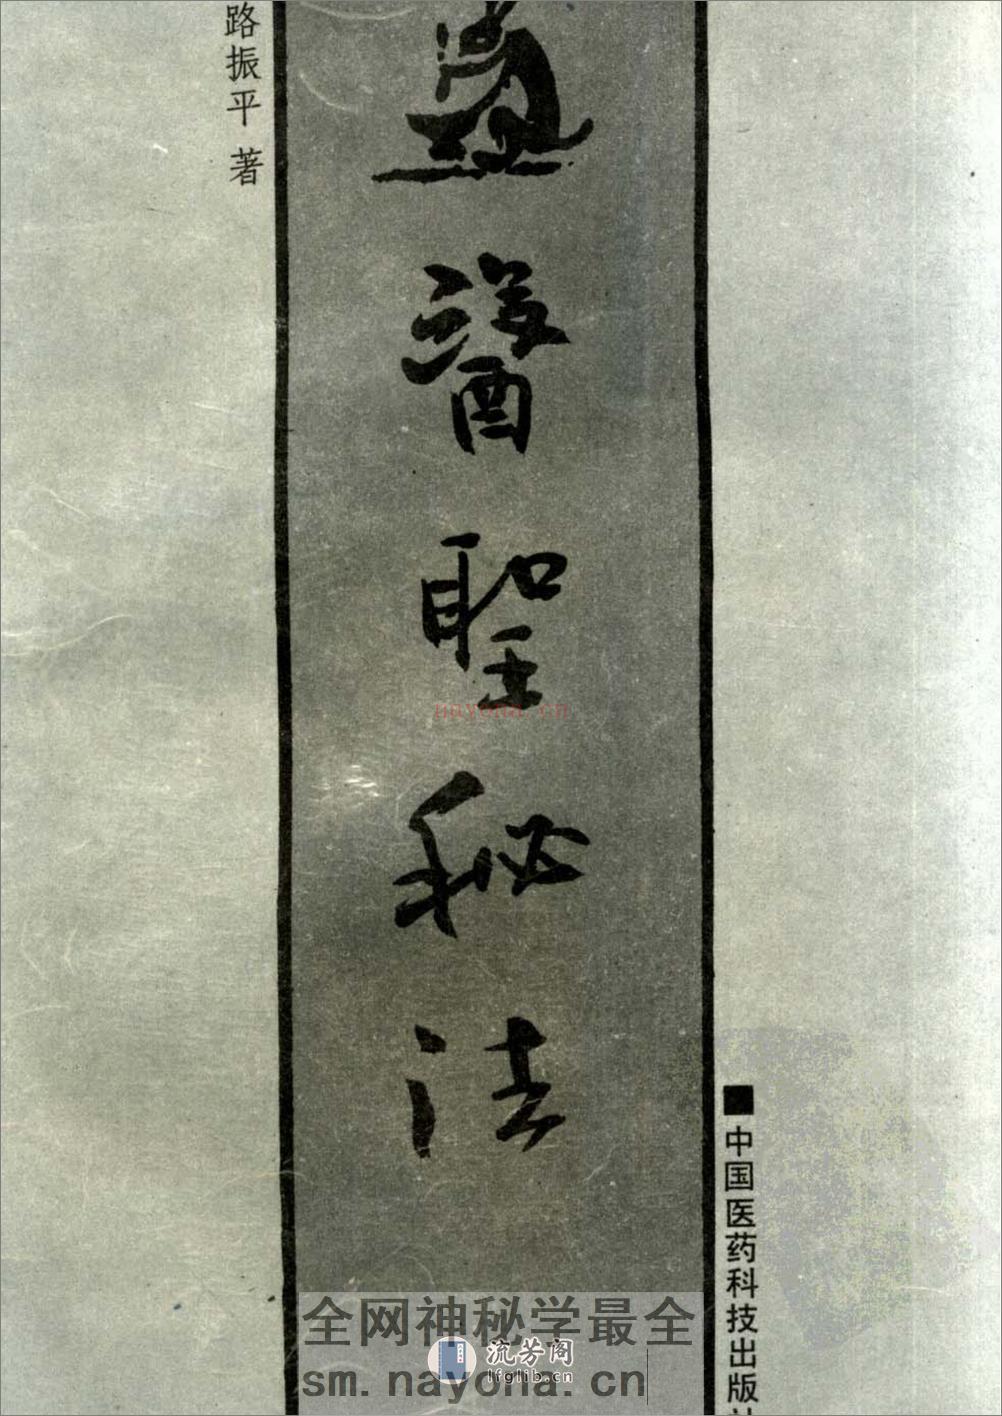 路振平 著
醫聖秘法
中国医药科技出版社
nayona.cn
全网神秘学最全
流芳阁
lfglib.cn
sm.nayona.cn